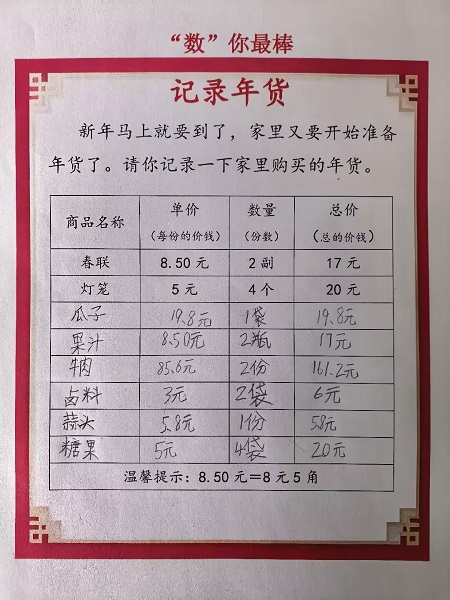 “数”你最棒
记录年货
新年马上就要到了，家里又要开始准备
年货了。请你记录一下家里购买的年货。
商品名称 单价（每份的价钱） 数量（份数） 总价（总的价钱）
春联 8.50元 2副 17元
灯笼 5元 4个 20元
瓜子 19.8元 1袋 19.8元
果汁 8.50元 2瓶 17元
牛肉 85.6元 2份 161.2元
卤料 3元 2袋 6元
蒜头 5.8元 1份 5.8元
糖果 5元 4袋 20元
温馨提示：8.50元＝8元5角